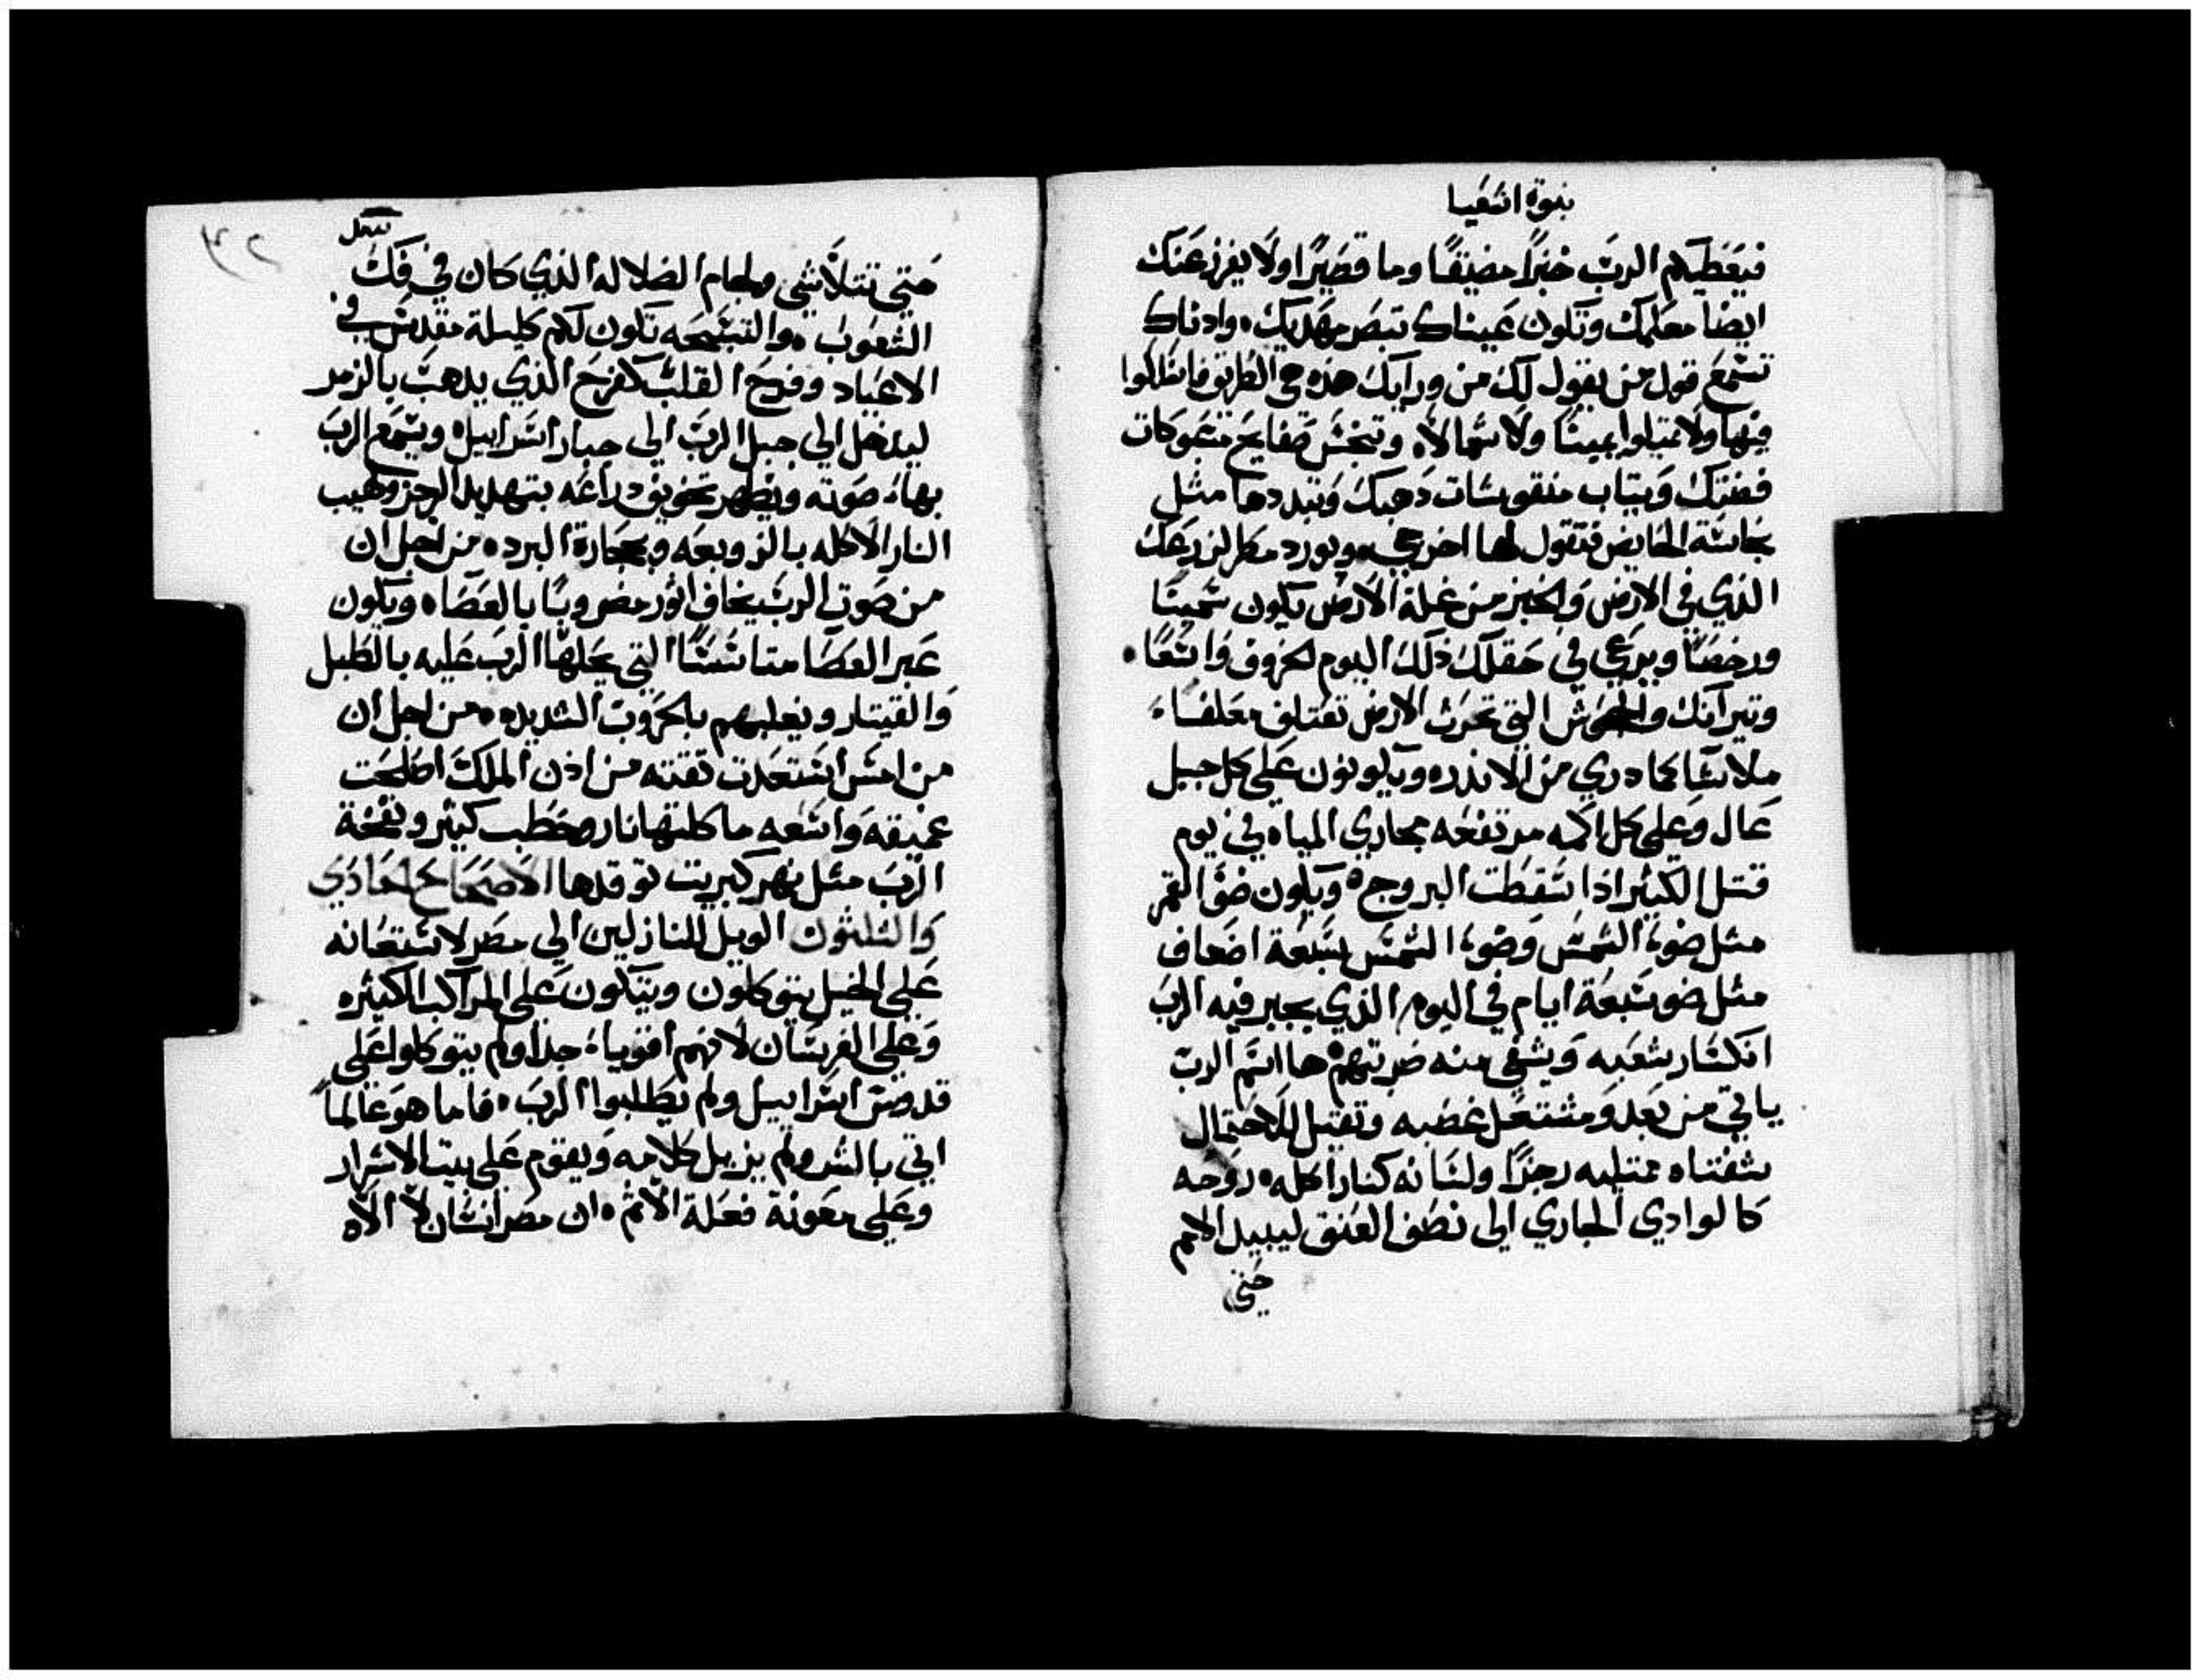 نبوة اشعيا
فيعَطيكم الربّ خبزًا مضيقًا وما قصَيرًا ولا يفرز عَنك
ايضًا معَلمك وتكون عَيناك تبصَر مهديك، وادناك
تسمع قول من يقول لك من ورآيك هذه هي الطريق فاسلكوا
فيها ولا تميلوا يمينًا ولا شمالاً، وتنجس صَفايح منحوتات
فضتك وتياب منقوشات دهبك وتبددها مثل
نجاسَة الحايض فتقول لها اخرجي، ويورد مطر لزرعك
الذي في الارض والخبز من غلة الارض يكون سَمينًا
ورخصًا ويرعي في حَقلك ذلك اليوم الخروف واسَعًا.
وتيرانك والجحوش التي تحرث الارض تعَتلف معَلفًا
ملاتسًا كما دري من الاندر، ويكونون عَلي كل جبل
عَال وَعَلي كل اكمه مرتفعَه مجاري المياه في يوم
قتل الكثير اذا سَقطت البروج، ويكون ضوَّ القمر
مثل ضوء الشمسَ وضوء الشمسَ سَبعَة اضعاف
مثل ضو سَبعَة ايام في اليوم الذي يجبر فيه الربَ
انكسَار شعَبه وَيشفي منه ضربتهم، ها اسَم الربّ
ياتي من بَعَد وَمشتعَل غضبه وتقيل للاحتمال
شفتاه ممتليه رجزًا ولسَانه كنار اكله، روحه
كالوادي الجاري الي نصَف العَنق ليبيد الامم
حَتي
٣٢
حَتي تتلاشي ولجام الضلاله الذي كان في فك
الشعَوب، والتسَبحَه تكون لكم كليلة مقدسَ في
الاعَياد وفرح القلب كفرح الذي يدهب بالزمر
ليدخل الي جبل الربّ الي جبار اسَراييل، ويسَمع الربَ
بهاء صَوته ويظهر تخويف دراعَه بتهديد الرجز ولهيب
النار الاكله بالزوبعَه وبحجارة البرد، من اجل ان
من صَوت الربّ يخاف اثور مضروبًا بالعَصَا، ويكون
عَبر العَصَا متاسَسًا التي يحلها الربّ عَليه بالطبل
وَالقيتار ويغلبهم بالحَروب الشديده، من اجل ان
من امسَ اسَتعدت تفته من اذن الملك اصَلحَت
عميقه وَاسَعه ماكلتها نار وحَطب كثير ونفخة
الرّب مثل نهر كبريت توقدها الاصَحَاح الحَادَي
وَالثلثون الويل للنازلين الي مصَر لاسَتعانه
عَلي الخيل يتوكلون ويتكون عَلي المراكب الكثيره
وَعَلي الفرسَان لانهم اقويا، جدا ولم يتوكلوا عَلي
قدوسَ اسَراييل ولم يطلبوا الربَ، فاما هوَ عَالمًا
اتي بالشر ولم يزيل كلامه وَيقوم عَلي بيت الاشرار
وعَلي معَونة فعَلة الاثم، ان مصَر انسَان لا الاه